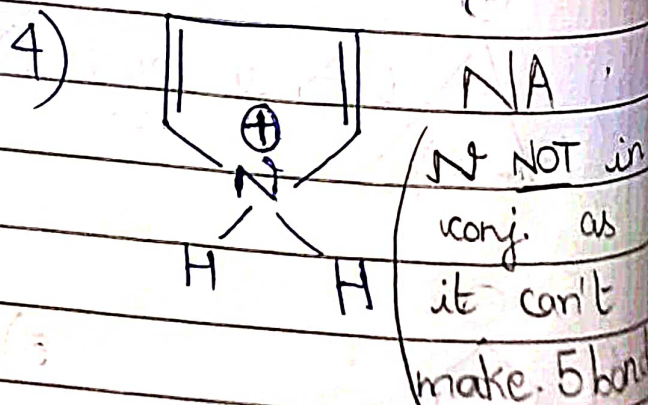 4)
NA
⊕
N
N NOT in
conj. as
H H
it can't
make. 5 bond